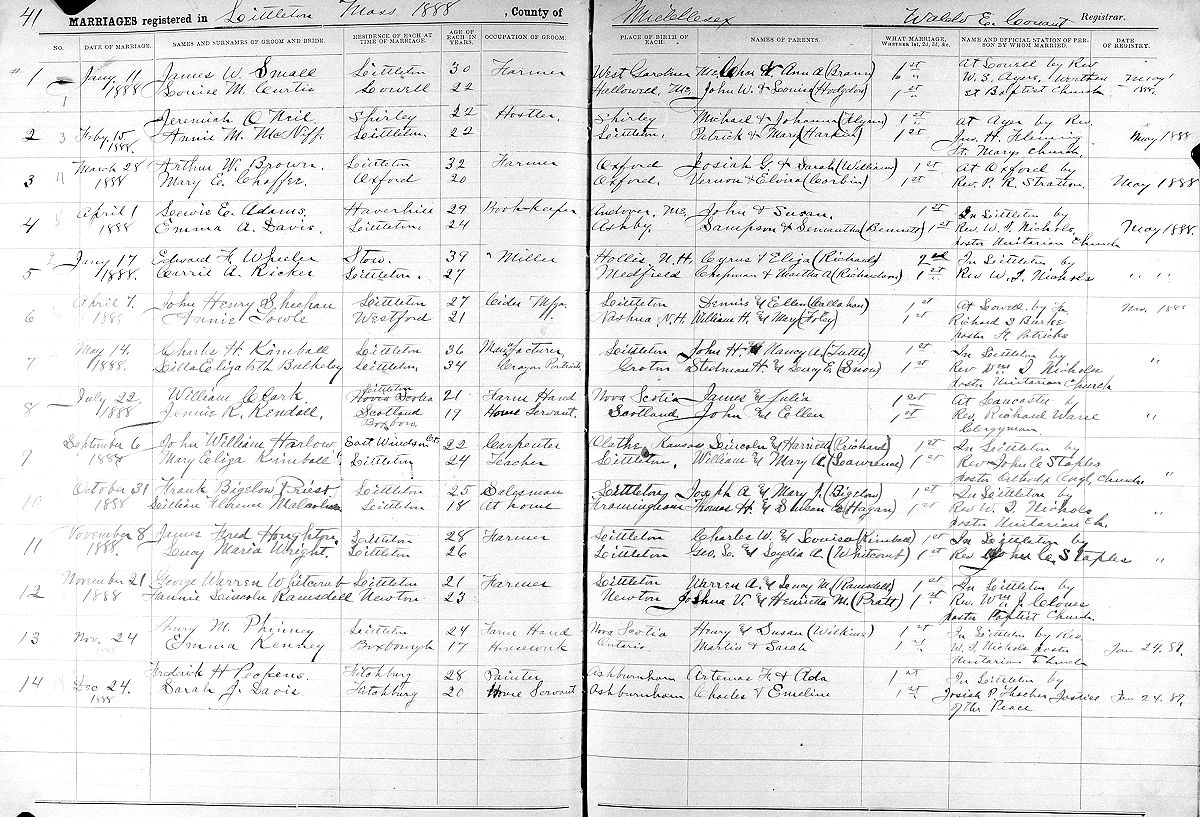 41 MARRIAGES registered in Littleton Mass 1888, County of Middlesex Walds E. Conant Registrar.
NO. DATE OF MARRIAGE. NAMES AND SURNAMES OF GROOM AND BRIDE. RESIDENCE OF EACH AT TIME OF MARRIAGE. AGE OF EACH IN YEARS. OCCUPATION OF GROOM. PLACE OF BIRTH OF EACH. NAMES OF PARENTS. WHAT MARRIAGE, WHETHER 1st, 2d, 3d, &c. NAME AND OFFICIAL STATION OF PERSON BY WHOM MARRIED. DATE OF REGISTRY.
1 Jany. 11 James W. Small Littleton 30 Farmer West Gardiner Me. & Ann A (Brann) 1st At Lowell by Rev
1 1888 Louise M. Curtis Lowell 22 Hallowell, Me. John W. & Louise (Hodgdon) 1st W. S. Ayres, May
1st Baptist Church 1888.
Jeremiah O'Neil Shirley 22 Hostler Shirley Michael & Johanna (Flynn) 1st At Ayer by Rev.
2 3 Feby 15 Annie M. McNiff Littleton 22 Littleton. Patrick & Mary (Harkin) 1st Jno. H. Fleming May 1888
1888. St. Marys Church.
March 28 Arthur W. Brown Littleton 32 Farmer Oxford Josiah G & Sarah (William) 1st At Oxford by
3 4 1888 Mary E. Chaffee. Oxford 20 Oxford. Vernon & Elvira (Corbin) 1st Rev. P. R. Stratton. May 1888
April 1 Lewis E. Adams Haverhill 29 Book-keeper Andover, Me. John & Susan. 1st In Littleton by
4 1888 Emma A. Davis. Littleton 24 Ashby Sampson & Semantha (Bennett) 1st Rev. W. I. Nichols, May 1888.
pastor Unitarian Church
2 Jany 17 Edward F. Wheeler Stow. 39 Miller Hollis, N.H. Cyrus & Eliza (Richards) 2nd In Littleton by
5 1888. Carrie A. Ricker Littleton. 27 Medfield Chapman & (Richardson) 1st Rev W. I. Nichols " "
April 7. John Henry Sheehan Littleton 27 Cider Mfgr. Littleton Dennis & Ellen (Callahan) 1st At Lowell by Fr. Nov. 1888
6 1888 Annie Towle Westford 21 Nashua, N.H. William H. & Mary (Foley) 1st Richard S Burke
pastor St. Patricks
May 14. Charles H. Kimball Littleton 36 Manufacturer Littleton John H. & Nancy A (Tuttle) 1st In Littleton by
7 1888. Lilla Elizabeth Bulkeley Littleton 34 Crayon Portraits Groton Stedman H. & Lucy E. (Snow) 1st Rev Wm I Nichols "
pastor Unitarian Church
July 22 William Clark Littleton Nova Scotia 21 Farm Hand Nova Scotia James & Julia 1st At Lancaster by
8 1888 Jennie R. Kendall. Scotland Boxboro. 19 House Servant. Scotland John & Ellen 1st Rev. Richard Ware "
Clergyman.
September 6 John William Harlow East Windsor Ct. 22 Carpenter Olathe, Kansas Lincoln & Harriett (Prichard) 1st In Littleton by
9 1888 Mary Eliza Kimball Littleton 24 Teacher Littleton. William & Mary A (Lawrence) 1st Rev John C Staples
pastor Orthodx Congl. Church "
October 31 Frank Bigelow Priest Littleton 25 Salesman Littleton Joseph A & Mary J. (Bigelow) 1st In Littleton by
10 1888 Lillian Florence Littleton 18 At home Framingham Thomas H. & Susan E (Hagar) 1st Rev W. I. Nichols "
pastor Unitarian Ch.
November 8 James Fred Houghton Littleton 28 Farmer Littleton Charles W. & Louisa (Kimball) 1st In Littleton by
11 1888. Lucy Maria Wright. Littleton 26 Littleton Geo. S. & Lydia A. (Whitcomb) 1st Rev John C. Staples "
November 21 George Warren Whitcomb Littleton 21 Farmer Littleton Warren A. & Lucy M. (Ramsdell) 1st In Littleton by
12 1888 Fannie Lincoln Ramsdell Newton 23 Newton Joshua V. & Henrietta M. (Pratt) 1st Rev. Wm J. Cloues "
pastor Baptist Church
Henry M. Phinney Littleton 24 Farm Hand Nova Scotia Henry & Susan (Wilkins) 1st In Littleton by Rev.
13 Nov. 24 Emma Kenney Boxborough 17 Housework Ontario Martin & Sarah 1st W. I. Nichols pastor Jan 24. 89.
Unitarian Church
Frederick H Fitchburg 28 Painter Ashburnham Artemas F. & Ada 1st In Littleton by
14 Dec 24. Sarah J. Davis Fitchburg 20 House Servant Ashburnham Charles & Emeline 1st Josiah P. Thacher Justice Jan 24. 89.
1888 of the Peace